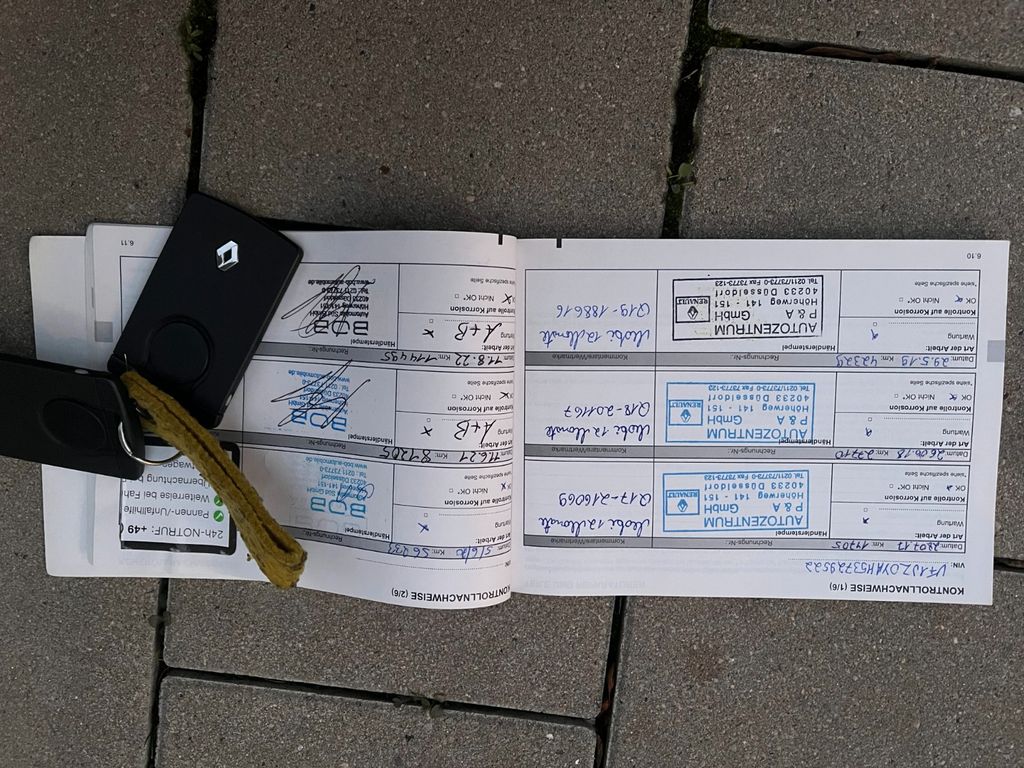 KONTROLLNACHWEISE (1/6)
VIN: VF1JZ0YAH53729522
Datum: Km: 14705 Rechnungs-Nr.: Kommentare/Vermerke
Art der Arbeit: Händlerstempel
Wartung
Kontrolle auf Korrosion
OK Nicht OK*
*siehe spezifische Seite
AUTOZENTRUM
P & A GmbH
Höherweg 141 - 151
40233 Düsseldorf
Tel. 0211/73773-0 Fax 73773-123
RENAULT
Mobi 12 Monate
Q17-216069
Datum: 26.06.18 Km: 27710 Rechnungs-Nr.: Kommentare/Vermerke
Art der Arbeit: Händlerstempel
Wartung
Kontrolle auf Korrosion
OK Nicht OK*
*siehe spezifische Seite
AUTOZENTRUM
P & A GmbH
Höherweg 141 - 151
40233 Düsseldorf
Tel. 0211/73773-0 Fax 73773-123
RENAULT
Mobi 12 Monate
Q18-201167
Datum: 29.5.19 Km: 42329 Rechnungs-Nr.: Kommentare/Vermerke
Art der Arbeit: Händlerstempel
Wartung
Kontrolle auf Korrosion
OK Nicht OK*
*siehe spezifische Seite
AUTOZENTRUM
P & A GmbH
Höherweg 141 - 151
40233 Düsseldorf
Tel. 0211/73773-0 Fax 73773-123
RENAULT
Mobi 12 Monate
Q19-188616
6.10
KONTROLLNACHWEISE (2/6)
VIN:
Datum: 5/6/20 Km: 56233
Art der Arbeit: Händlerstempel
Wartung
Kontrolle auf Korrosion
OK Nicht OK*
*siehe spezifische Seite
BOB
Automobile Süd GmbH
Höherweg 141-151
40233 Düsseldorf
Tel. 0211 73773-0
www.bob-automobile.de
11.6.21 Km: 87205 Rechnungs-Nr.
Art der Arbeit: Händlerstempel
Wartung A+B
Kontrolle auf Korrosion
OK Nicht OK*
*siehe spezifische Seite
BOB
40233 Düsseldorf
Tel. 0211 73773-0
www.bob-automobile.de
11.8.22 Km: 114495 Rechnungs-Nr.
Art der Arbeit: Händlerstempel
Wartung A+B
Kontrolle auf Korrosion
OK Nicht OK*
*siehe spezifische Seite
BOB
Automobile Süd GmbH
Höherweg 141-151
40233 Düsseldorf
Tel. 0211 73773-0
www.bob-automobile.de
6.11
24h-NOTRUF: +49
Pannen-/Unfallhilfe
Weiterreise bei Fah
Übernachtung